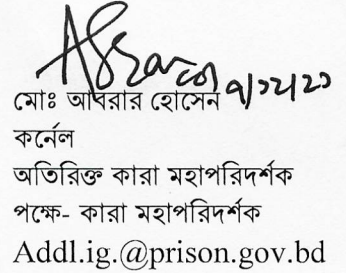 মোঃ আবরার হোসেন
কর্নেল
অতিরিক্ত কারা মহাপরিদর্শক
পক্ষে- কারা মহাপরিদর্শক
Addl.ig.@prison.gov.bd